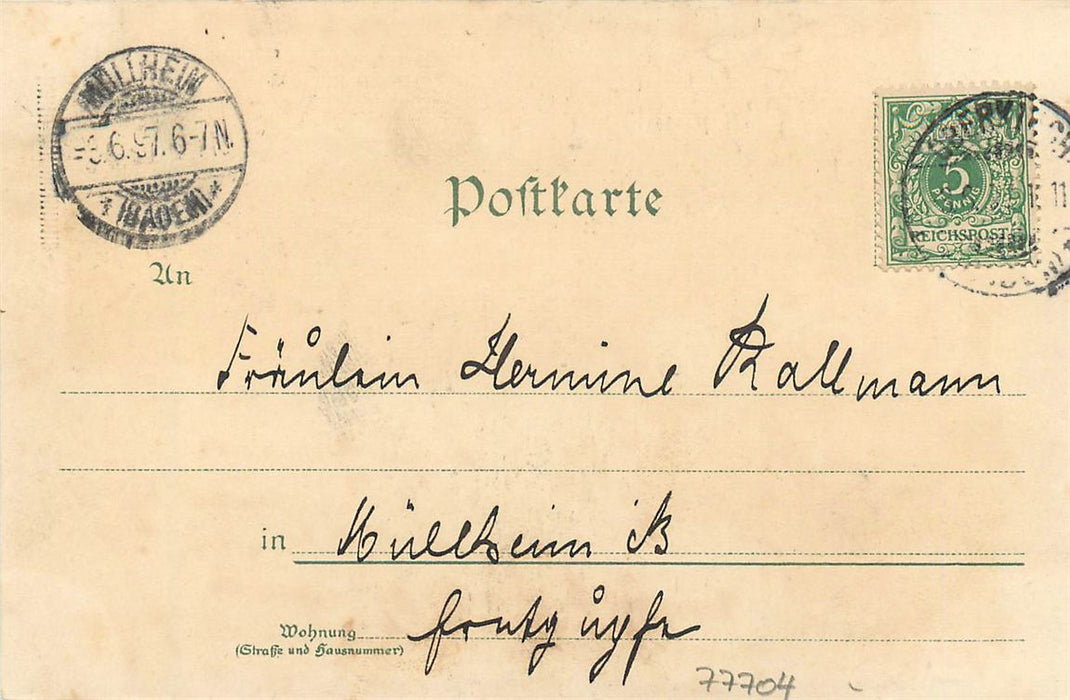 MÜLLHEIM
6.97. 6-7N.
* (BADEN) *
Postkarte
5
PFENNIG
REICHSPOST
11
An
Fräulein Hermine Kallmann
in Müllheim iB
Wohnung
(Straße und Hausnummer)
77704